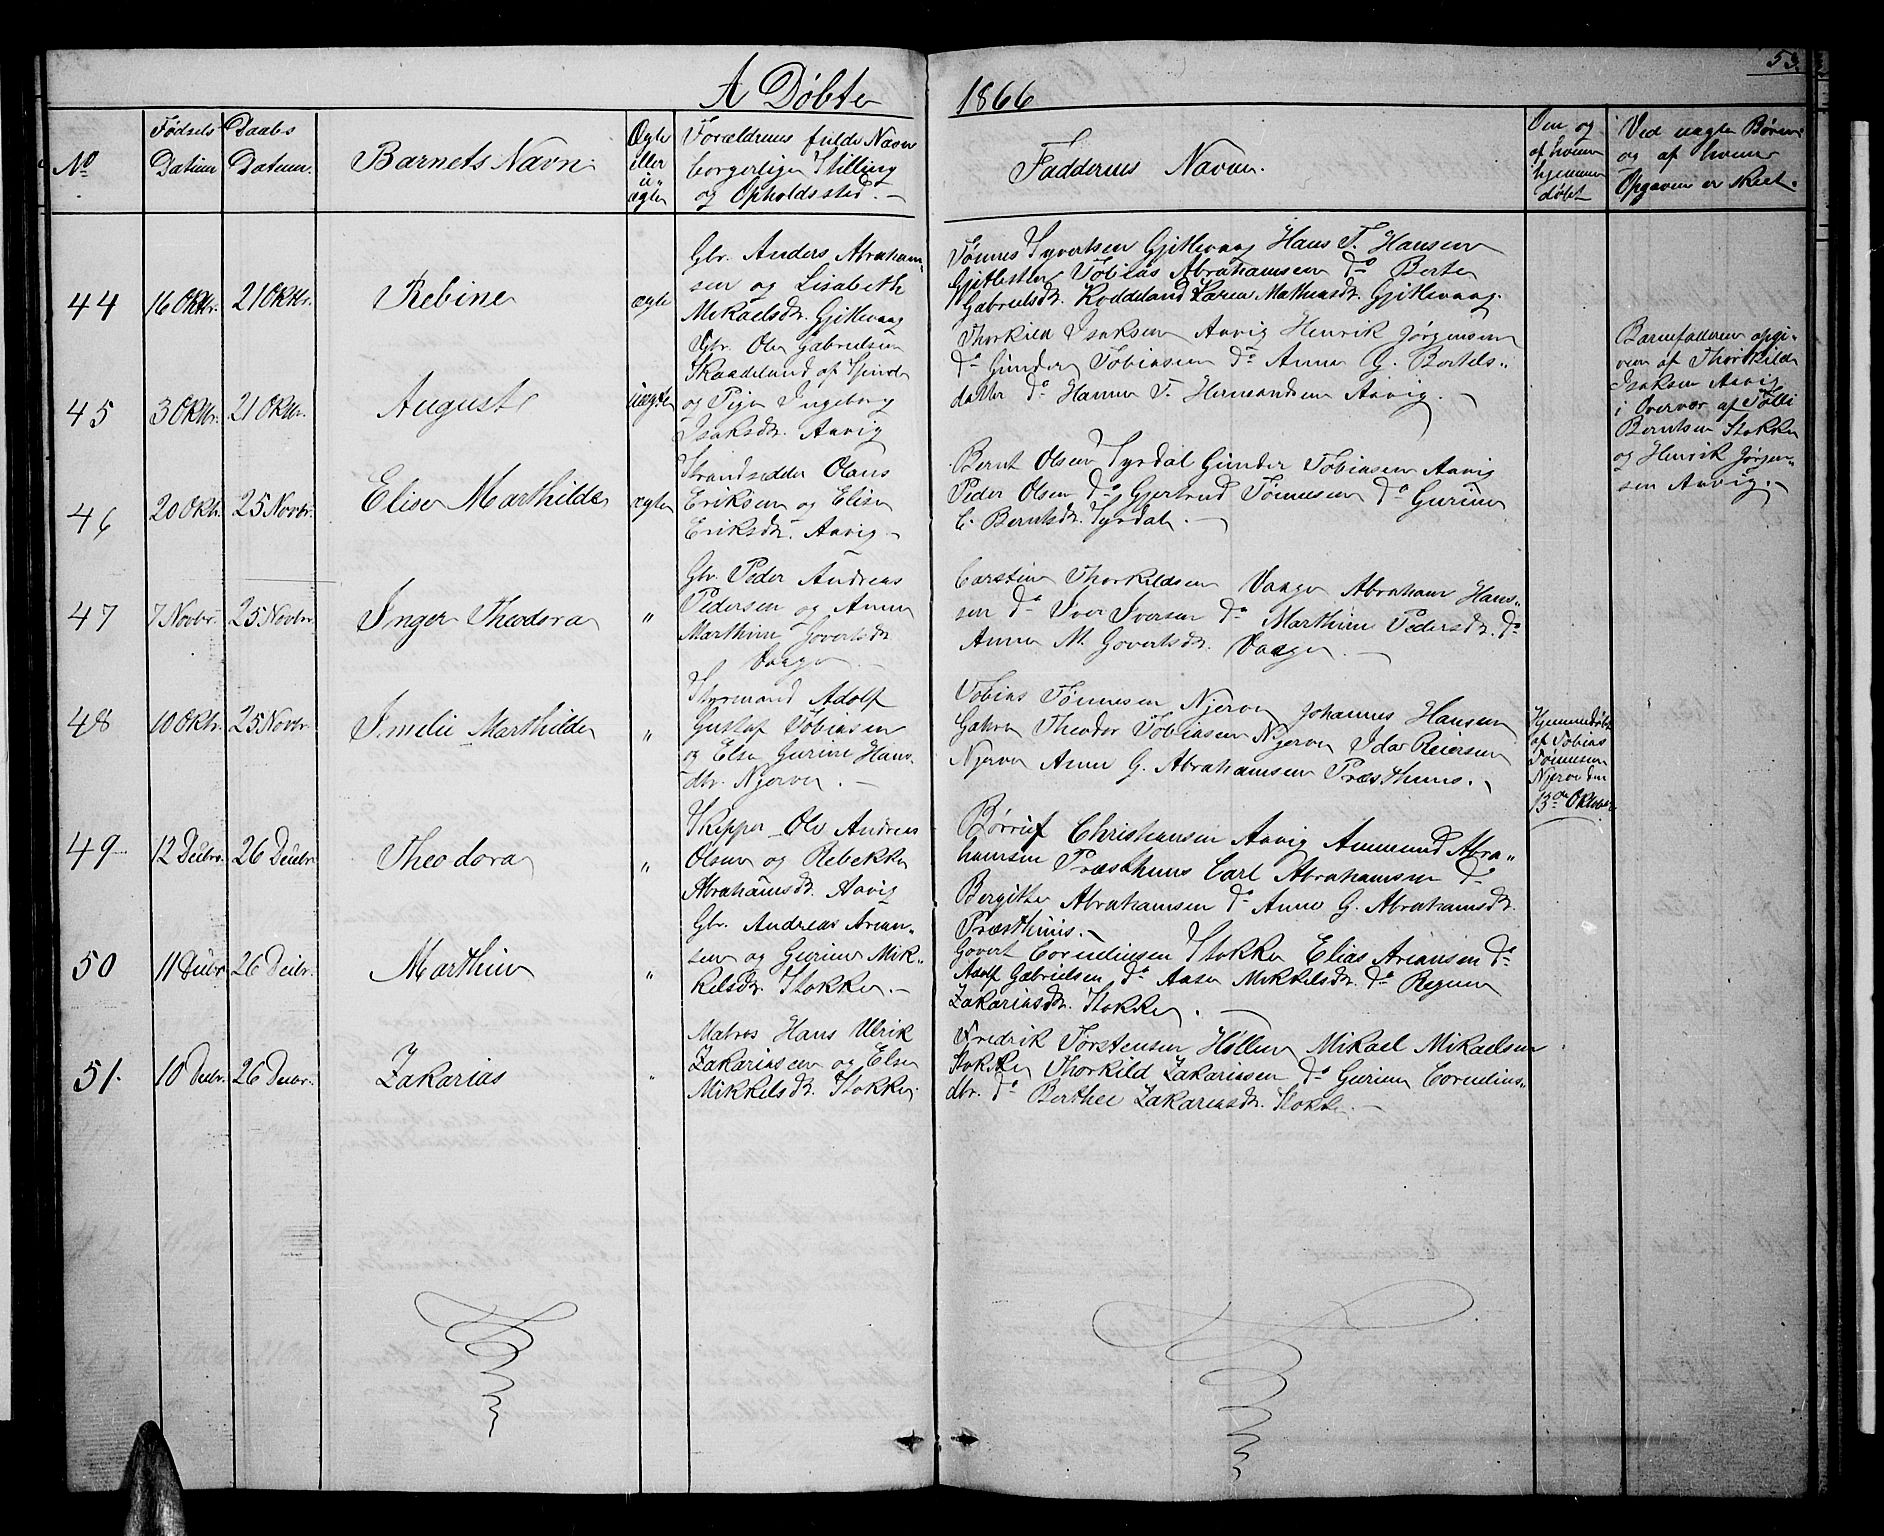 53.
A Døbte 1866
No
Fødsels Datum
Daabs Datum.
Barnets Navn.
Ægte eller u- ægte
Forældrenes fulde Navn
borgerlige Stilling
og Opholdssted. -
Faddernes Navne.
Om og
af hvem
hjemme
døbt
Ved uægte Børn:
og af hvem
Opgaven er skeet.
44
16 Oktbr.
21 Oktbr.
Rebine
ægte
Gbr. Anders Abraham-
sen og Lisabeth
Mikaelsdtr. Gjitlevaag
Tønnes Syvertsen Gjitlevaag Hans T. Hansen
Gjitlesten Tobias Abrahamsen do Berte
Gabrielsdr. Roddeland Karen Mathiasdr. Gjitlevaag.
45
3 Oktbr.
21 Oktbr.
August
uægte
Gbr. Ole Gabrielsen
Skaadeland af
og Pige Ingeborg
Isaksdr. Aavig
Thorkild Isaksen Aavig Henrik Jørgensen
do Gunder Tobiasen do Anne G. Bertels-
datter do Hanne T. Hermandsen Aavig. -
Barnefaderen opgi-
ven af Thorkild
Isaksen Aavig
i Overvær af Tolli
Berntsen Stokke
og Henrik Jørgen-
sen Aavig. -
46
20 Oktbr.
25 Novbr.
Elise Marthilde
ægte
Strandsidder Olaus
Eriksen og Elise
Eriksdr. Aavig -
Bernt Olsen Syrdal Gunder Tobiasen Aavig
Peder Olsen do Gjertrud Tønnesen do Gurine
C. Berntsdr. Syrdal. -
47
7 Novbr.
25 Novbr.
Inger Theodora
"
Gbr. Peder Andreas
Pedersen og Anne
Marthine Govertsdr
Vaage. -
Carstine Thorkildsen Vaage Abraham Hans-
sen do Iver Iversen do Marthine Pedersdr. do
Anne M. Govertsdr. Vaage. -
48
10 Oktbr.
25 Novbr
Imelie Marthilde
"
Styrmand Adolf
Gustaf Tobiasen
og Else Gurine Hans-
dtr. Njerve. -
Tobias Tønnesen Njerve Johannes Hansen
Gahre Theodor Tobiasen Njerve Idar Reiersen
Njerve Anne G. Abrahamsen Præsthuus. -
Hjemmedøbt
af Tobias
Tønnesen
Njerve den
15de Oktober
49
12 Decbr.
26 Decbr
Theodora
"
Skipper Ole Andreas
Olsen og Rebekke
Abrahamsdr. Aavig
Børruf Christiansen Aavig Ammund Abra-
hamsen Præsthuus Carl Abrahamsen do
Bergithe Abrahamsen do Anne G. Abrahamsdr.
Præsthuus. -
50
11 Decbr
26 Decbr.
Marthine
"
Gbr. Andreas Arian-
sen og Gurine Mik-
kelsdr. Stokke. -
Govert Corneliusen Stokke Elias Ariansen do
Adolf Gabrielsen do Aase Mikkelsdr. do Regine
Zakariasdr. Stokke. -
51.
10 Decbr.
26 Decbr.
Zakarias
"
Matros Hans Ulrik
Zakariasen og Else
Mikkelsdr. Stokke.
Fredrik Torstensen Hollen Mikael Mikaelsen
Stokke Thorkild Zakariasen do Gurine Cornelius-
dtr. do Berthee Zakariasdr. Stokke. -